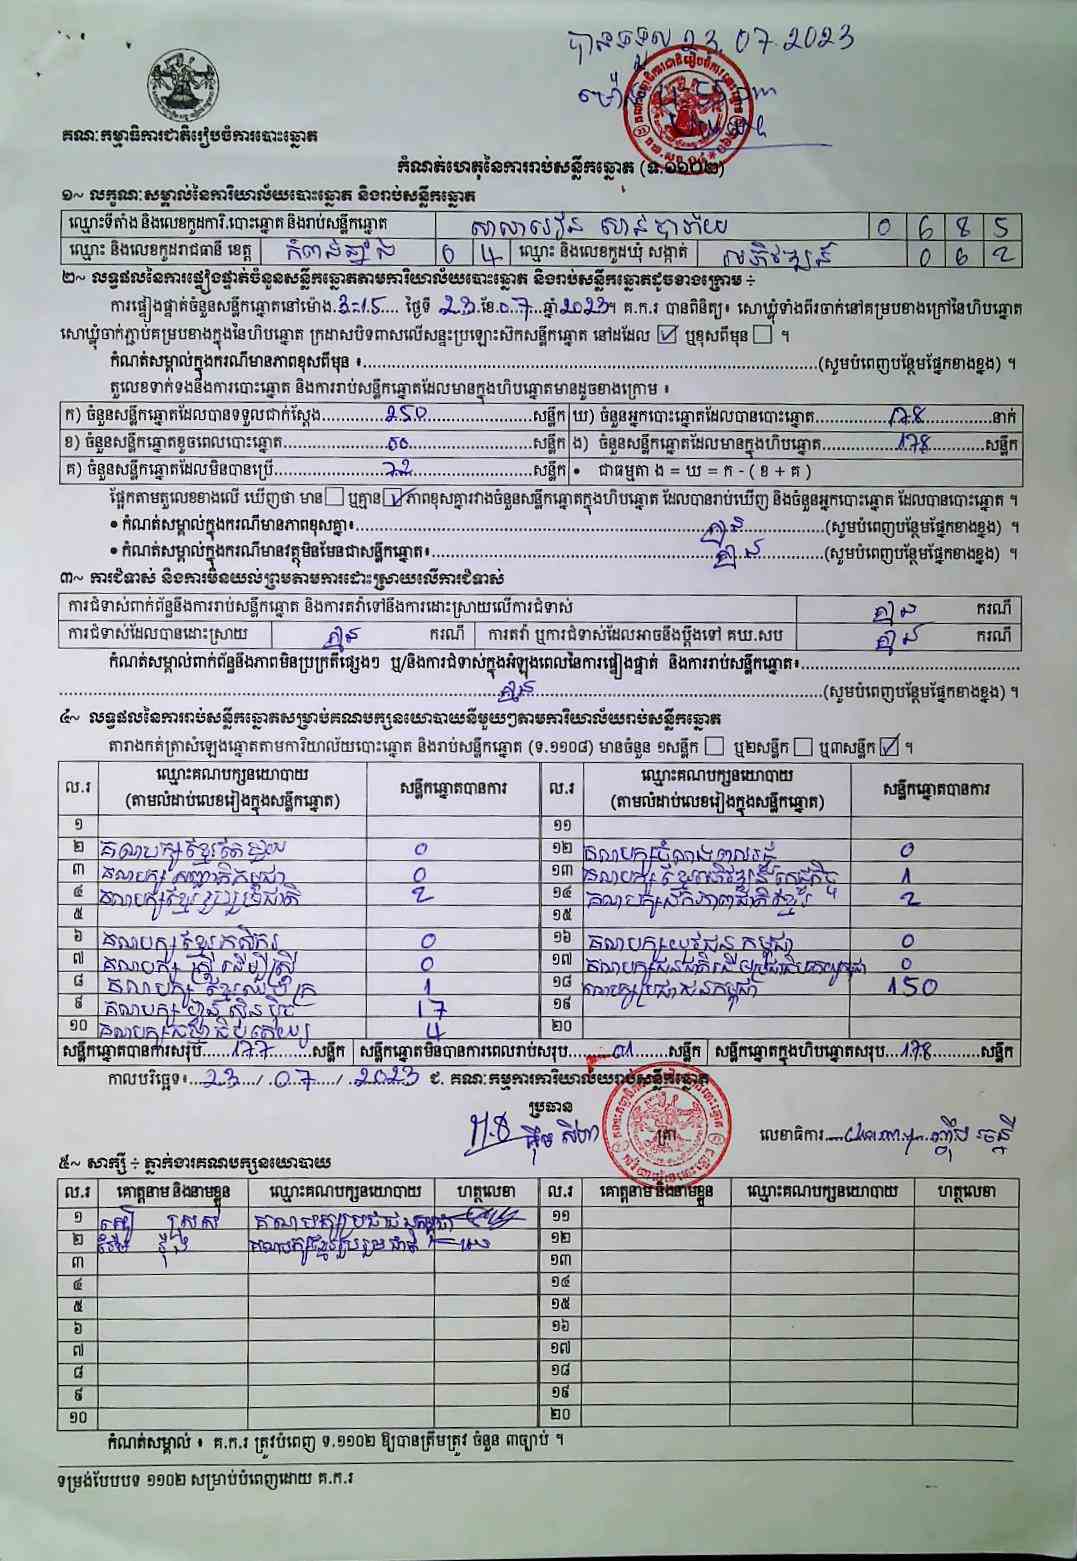 បានទទួល 23.07.2023
ម៉ោង
គណៈកម្មាធិការជាតិរៀបចំការបោះឆ្នោត
កំណត់ហេតុនៃការរាប់សន្លឹកឆ្នោត (ទ.១១០២)
១~ លក្ខណៈសម្គាល់នៃការិយាល័យបោះឆ្នោត និងរាប់សន្លឹកឆ្នោត
ឈ្មោះទីតាំង និងលេខកូដការិ.បោះឆ្នោត និងរាប់សន្លឹកឆ្នោត សាលារៀន 0 6 8 5
ឈ្មោះ និងលេខកូដរាជធានី ខេត្ត កំពង់ឆ្នាំង 0 4 ឈ្មោះ និងលេខកូដឃុំ សង្កាត់ 0 6 2
២~ លទ្ធផលនៃការផ្ទៀងផ្ទាត់ចំនួនសន្លឹកឆ្នោតតាមការិយាល័យបោះឆ្នោត និងរាប់សន្លឹកឆ្នោតដូចខាងក្រោម ÷
ការផ្ទៀងផ្ទាត់ចំនួនសន្លឹកឆ្នោតនៅម៉ោង.3:15.... ថ្ងៃទី .23.ខែ.07..ឆ្នាំ.2023។ គ.ក.រ បានពិនិត្យ៖ សោឃ្លុំទាំងពីរចាក់នៅគម្របខាងក្រៅនៃហិបឆ្នោត
សោឃ្លុំចាក់ភ្ជាប់គម្របខាងក្នុងនៃហិបឆ្នោត ក្រដាសបិទពាសលើសន្ទះប្រឡោះស៊កសន្លឹកឆ្នោត នៅដដែល ☑ ឬខុសពីមុន ☐ ។
កំណត់សម្គាល់ក្នុងករណីមានភាពខុសពីមុន ៖.....(សូមបំពេញបន្ថែមផ្នែកខាងខ្នង) ។
តួលេខទាក់ទងនឹងការបោះឆ្នោត និងការរាប់សន្លឹកឆ្នោតដែលមានក្នុងហិបឆ្នោតមានដូចខាងក្រោម ៖
ក) ចំនួនសន្លឹកឆ្នោតដែលបានទទួលជាក់ស្តែង.....250.....សន្លឹក ឃ) ចំនួនអ្នកបោះឆ្នោតដែលបានបោះឆ្នោត.....178.....នាក់
ខ) ចំនួនសន្លឹកឆ្នោតខូចពេលបោះឆ្នោត.....00.....សន្លឹក ង) ចំនួនសន្លឹកឆ្នោតដែលមានក្នុងហិបឆ្នោត.....178.....សន្លឹក
គ) ចំនួនសន្លឹកឆ្នោតដែលមិនបានប្រើ.....72.....សន្លឹក • ជាធម្មតា ង = ឃ = ក - ( ខ + គ )
ផ្អែកតាមតួលេខខាងលើ ឃើញថា មាន ☐ ឬគ្មាន ☑ ភាពខុសគ្នារវាងចំនួនសន្លឹកឆ្នោតក្នុងហិបឆ្នោត ដែលបានរាប់ឃើញ និងចំនួនអ្នកបោះឆ្នោត ដែលបានបោះឆ្នោត ។
• កំណត់សម្គាល់ក្នុងករណីមានភាពខុសគ្នា៖.....គ្មាន.....(សូមបំពេញបន្ថែមផ្នែកខាងខ្នង) ។
• កំណត់សម្គាល់ក្នុងករណីមានវត្ថុមិនមែនជាសន្លឹកឆ្នោត៖.....គ្មាន.....(សូមបំពេញបន្ថែមផ្នែកខាងខ្នង) ។
៣~ ការជំទាស់ និងការមិនយល់ព្រមតាមការដោះស្រាយលើការជំទាស់
ការជំទាស់ពាក់ព័ន្ធនឹងការរាប់សន្លឹកឆ្នោត និងការតវ៉ាទៅនឹងការដោះស្រាយលើការជំទាស់ គ្មាន ករណី
ការជំទាស់ដែលបានដោះស្រាយ គ្មាន ករណី ការតវ៉ា ឬការជំទាស់ដែលអាចនឹងប្តឹងទៅ គឃ.សប គ្មាន ករណី
កំណត់សម្គាល់ពាក់ព័ន្ធនឹងភាពមិនប្រក្រតីផ្សេងៗ ឬ/និងការជំទាស់ក្នុងអំឡុងពេលនៃការផ្ទៀងផ្ទាត់ និងការរាប់សន្លឹកឆ្នោត៖.....
.....គ្មាន.....(សូមបំពេញបន្ថែមផ្នែកខាងខ្នង) ។
៤~ លទ្ធផលនៃការរាប់សន្លឹកឆ្នោតសម្រាប់គណបក្សនយោបាយនីមួយៗតាមការិយាល័យរាប់សន្លឹកឆ្នោត
តារាងកត់ត្រាសំឡេងឆ្នោតតាមការិយាល័យបោះឆ្នោត និងរាប់សន្លឹកឆ្នោត (ទ.១១០៨) មានចំនួន ១សន្លឹក ☐ ឬ២សន្លឹក ☐ ឬ៣សន្លឹក ☑ ។
ល.រ ឈ្មោះគណបក្សនយោបាយ (តាមលំដាប់លេខរៀងក្នុងសន្លឹកឆ្នោត) សន្លឹកឆ្នោតបានការ ល.រ ឈ្មោះគណបក្សនយោបាយ (តាមលំដាប់លេខរៀងក្នុងសន្លឹកឆ្នោត) សន្លឹកឆ្នោតបានការ
១ ១១
២ គណបក្សខ្មែរតែមួយ 0 ១២ 0
៣ គណបក្សសញ្ជាតិកម្ពុជា 0 ១៣ គណបក្សខ្មែរអភិវឌ្ឍន៍សេដ្ឋកិច្ច 1
៤ គណបក្សខ្មែររួបរួមជាតិ 2 ១៤ គណបក្សឯកភាពជាតិខ្មែរ 2
៥ ១៥
៦ គណបក្សខ្មែរកសិករ 0 ១៦ គណបក្សយុវជនកម្ពុជា 0
៧ គណបក្សស្ត្រីដើម្បីស្ត្រី 0 ១៧ គណបក្សជនជាតិដើមប្រជាធិបតេយ្យកម្ពុជា 0
៨ គណបក្សខ្មែរឈប់ក្រ 1 ១៨ គណបក្សប្រជាជនកម្ពុជា 150
៩ គណបក្សហ៊្វុនស៊ិនប៉ិច 17 ១៩
១០ 4 ២០
សន្លឹកឆ្នោតបានការសរុប.....177.....សន្លឹក សន្លឹកឆ្នោតមិនបានការពេលរាប់សរុប.....01.....សន្លឹក សន្លឹកឆ្នោតក្នុងហិបឆ្នោតសរុប...178.....សន្លឹក
កាលបរិច្ឆេទ៖...23.../.07.../..2023 ជ. គណៈកម្មការការិយាល័យរាប់សន្លឹកឆ្នោត
ប្រធាន
ត្រា
លេខាធិការ
៥~ សាក្សី ÷ ភ្នាក់ងារគណបក្សនយោបាយ
ល.រ គោត្តនាម និងនាមខ្លួន ឈ្មោះគណបក្សនយោបាយ ហត្ថលេខា ល.រ គោត្តនាម និងនាមខ្លួន ឈ្មោះគណបក្សនយោបាយ ហត្ថលេខា
១ គណបក្សប្រជាជនកម្ពុជា ១១
២ គណបក្សខ្មែររួបរួមជាតិ ១២
៣ ១៣
៤ ១៤
៥ ១៥
៦ ១៦
៧ ១៧
៨ ១៨
៩ ១៩
១០ ២០
កំណត់សម្គាល់ ៖ គ.ក.រ ត្រូវបំពេញ ទ.១១០២ ឱ្យបានត្រឹមត្រូវ ចំនួន ៣ច្បាប់ ។
ទម្រង់បែបបទ ១១០២ សម្រាប់បំពេញដោយ គ.ក.រ